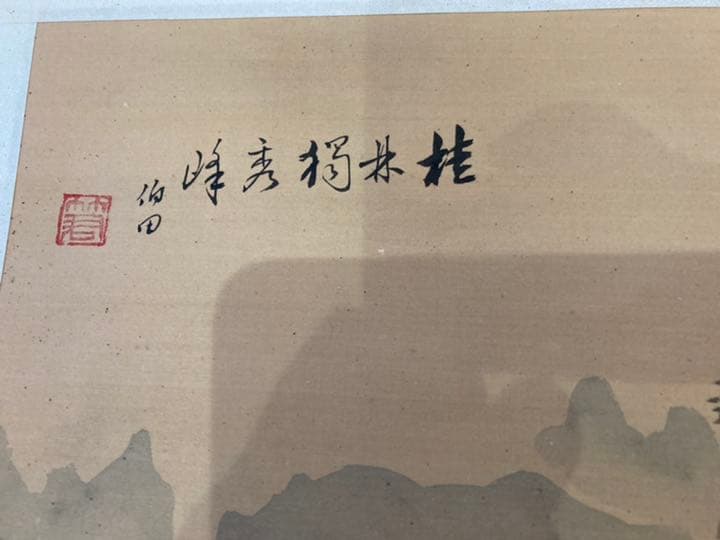 桂林獨秀峰
伯田